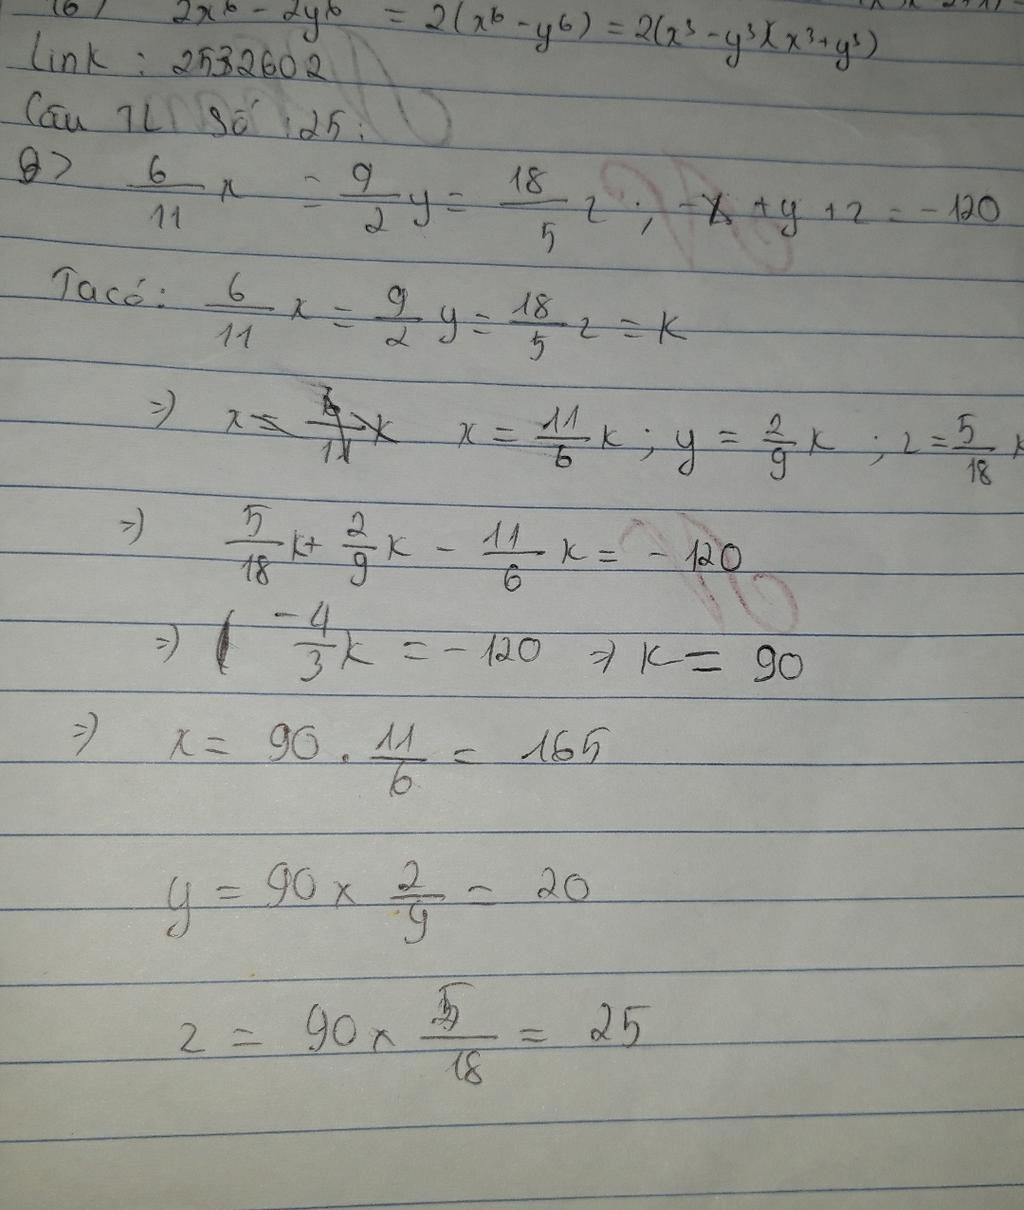 2x⁶ - 2y⁶ = 2(x⁶ - y⁶) = 2(x³ - y³)(x³ + y³)
Link : 2532602
Câu TL Số 25 :
6/11 x = 9/2 y = 18/5 z ; -x + y + z = -120
Ta có : 6/11 x = 9/2 y = 18/5 z = k
=> x = 11/6 k ; y = 2/9 k ; z = 5/18 k
=> 5/18 k + 2/9 k - 11/6 k = -120
=> -4/3 k = -120 => k = 90
=> x = 90 . 11/6 = 165
y = 90 x 2/9 = 20
z = 90 x 5/18 = 25